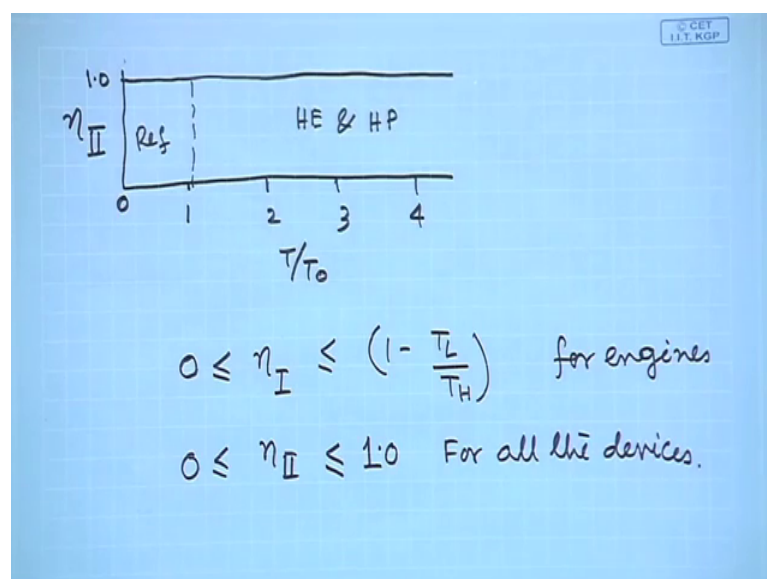 © CET
I.I.T. KGP
1.0
η_II
Ref
HE & HP
0 1 2 3 4
T/T₀
0 ≤ η_I ≤ (1 - T_L/T_H) for engines
0 ≤ η_II ≤ 1.0 For all the devices.